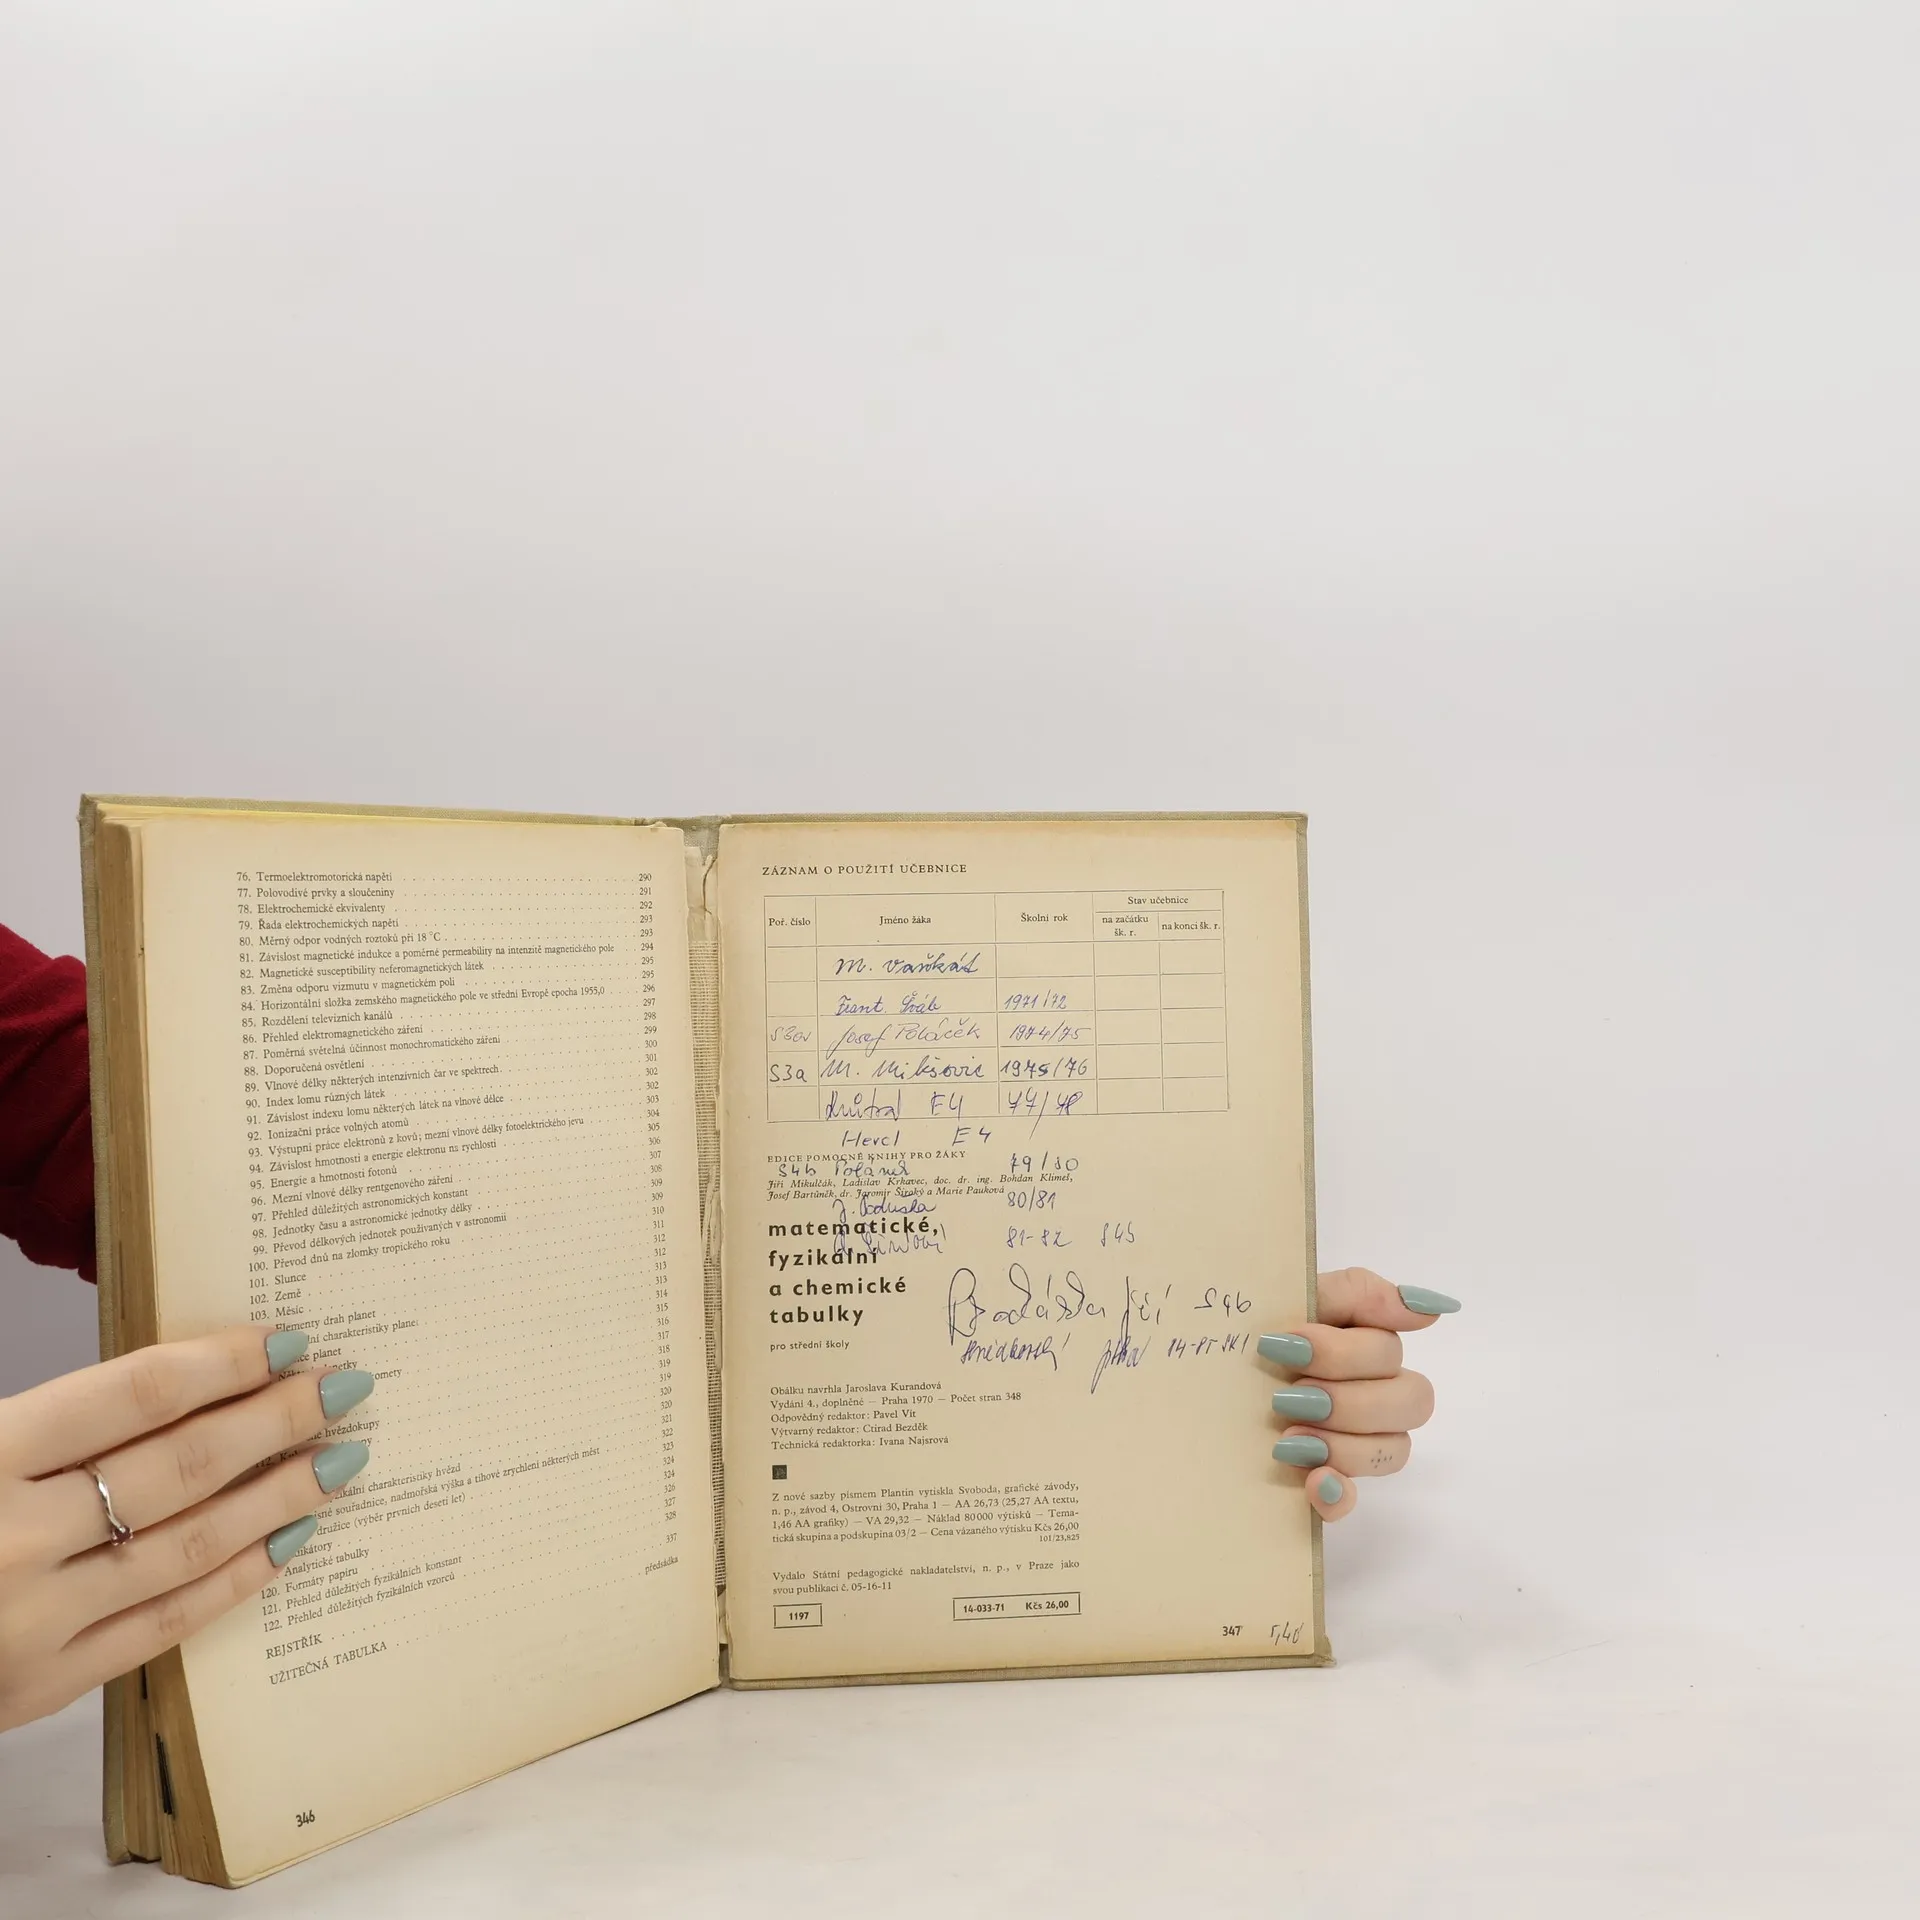 76. Termoelektromotorická napětí 290
77. Polovodivé prvky a sloučeniny 291
78. Elektrochemické ekvivalenty 292
79. Řada elektrochemických napětí 293
80. Měrný odpor vodných roztoků při 18 °C 293
81. Závislost magnetické indukce a poměrné permeability na intenzitě magnetického pole 294
82. Magnetické susceptibility neferomagnetických látek 295
83. Změna odporu vizmutu v magnetickém poli 295
84. Horizontální složka zemského magnetického pole ve střední Evropě epocha 1955,0 296
85. Rozdělení televizních kanálů 297
86. Přehled elektromagnetického záření 298
87. Poměrná světelná účinnost monochromatického záření 299
88. Doporučená osvětlení 300
89. Vlnové délky některých intenzivních čar ve spektrech 301
90. Index lomu různých látek 302
91. Závislost indexu lomu některých látek na vlnové délce 302
92. Ionizační práce volných atomů 303
93. Výstupní práce elektronů z kovů; mezní vlnové délky fotoelektrického jevu 304
94. Závislost hmotnosti a energie elektronu na rychlosti 305
95. Energie a hmotnosti fotonů 306
96. Mezní vlnové délky rentgenového záření 307
97. Přehled důležitých astronomických konstant 308
98. Jednotky času a astronomické jednotky délky 309
99. Převod délkových jednotek používaných v astronomii 309
100. Převod dnů na zlomky tropického roku 310
101. Slunce 311
102. Země 312
103. Měsíc 312
Elementy drah planet 313
charakteristiky planet 313
planet 314
315
316
hvězdokupy 317
318
charakteristiky hvězd 319
souřadnice, nadmořská výška a tíhové zrychlení některých měst
družice (výběr prvních deseti let)
Analytické tabulky
120. Formáty papíru
121. Přehled důležitých fyzikálních konstant
122. Přehled důležitých fyzikálních vzorců
REJSTŘÍK 337
UŽITEČNÁ TABULKA předsádka
346
ZÁZNAM O POUŽITÍ UČEBNICE
Poř. číslo Jméno žáka Školní rok Stav učebnice
na začátku šk. r. na konci šk. r.
M. Vaškát
Frant. Šváb 1971/72
Josef Poláček 1974/75
S3a M. Mikšovic 1975/76
E4 77/78
Hercl E4
EDICE POMOCNÉ KNIHY PRO ŽÁKY
S4b 79/80
Jiří Mikulčák, Ladislav Krkavec, doc. dr. ing. Bohdan Klimeš,
Josef Bartůněk, dr. Jaromír Široký a Marie Pauková
80/81
matematické,
81-82
fyzikální
a chemické
tabulky
Jiří S4b
pro střední školy
Obálku navrhla Jaroslava Kurandová
Vydání 4., doplněné — Praha 1970 — Počet stran 348
Odpovědný redaktor: Pavel Vít
Výtvarný redaktor: Ctirad Bezděk
Technická redaktorka: Ivana Najsrová
Z nové sazby písmem Plantin vytiskla Svoboda, grafické závody,
n. p., závod 4, Ostrovní 30, Praha 1 — AA 26,73 (25,27 AA textu,
1,46 AA grafiky) — VA 29,32 — Náklad 80000 výtisků — Tema-
tická skupina a podskupina 03/2 — Cena vázaného výtisku Kčs 26,00
101/23,825
Vydalo Státní pedagogické nakladatelství, n. p., v Praze jako
svou publikaci č. 05-16-11
1197
14-033-71 Kčs 26,00
347
5,40